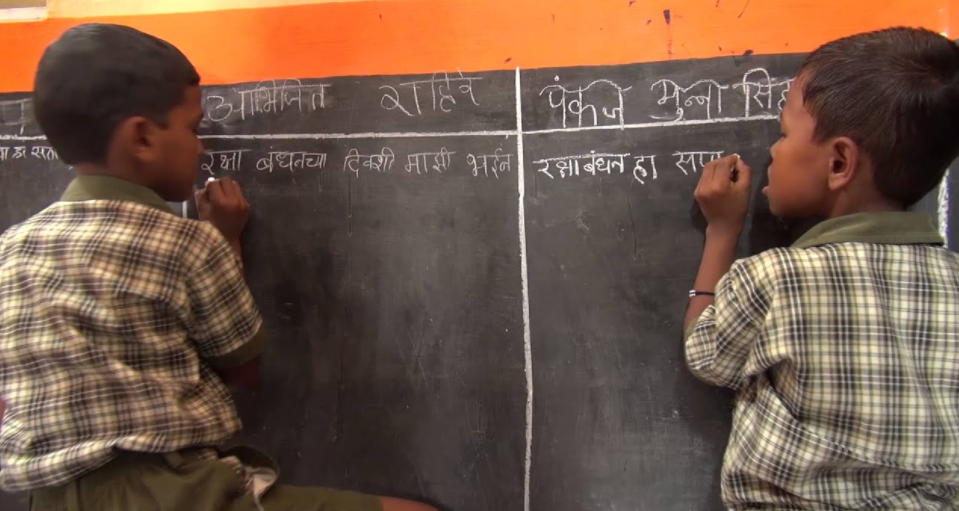 अभिजित
रक्षा बंधनच्या दिवशी माझी भईन
पंकज मुन्ना सिंह
रक्षाबंधन हा सण